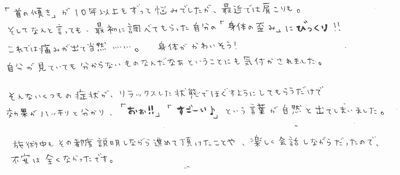 「首の傾き」が10年以上もずっと悩みでしたが、最近では肩こりも。
そしてなんと言っても、最初に調べてもらった自分の「身体の歪み」にびっくり!!
これでは痛みが出て当然……。 身体がかわいそう!
自分が見ていても分からないものなんだなぁということにも気付かされました。
そんないくつもの症状が、リラックスした状態でほぐすようにしてもらうだけで
効果がハッキリと分かり、「おぉ!!」「すごーい♪」という言葉が自然と出てしまいました。
施術中もその都度説明しながら進めて頂けたことや、楽しく会話しながらだったので、
不安は全くなかったです。